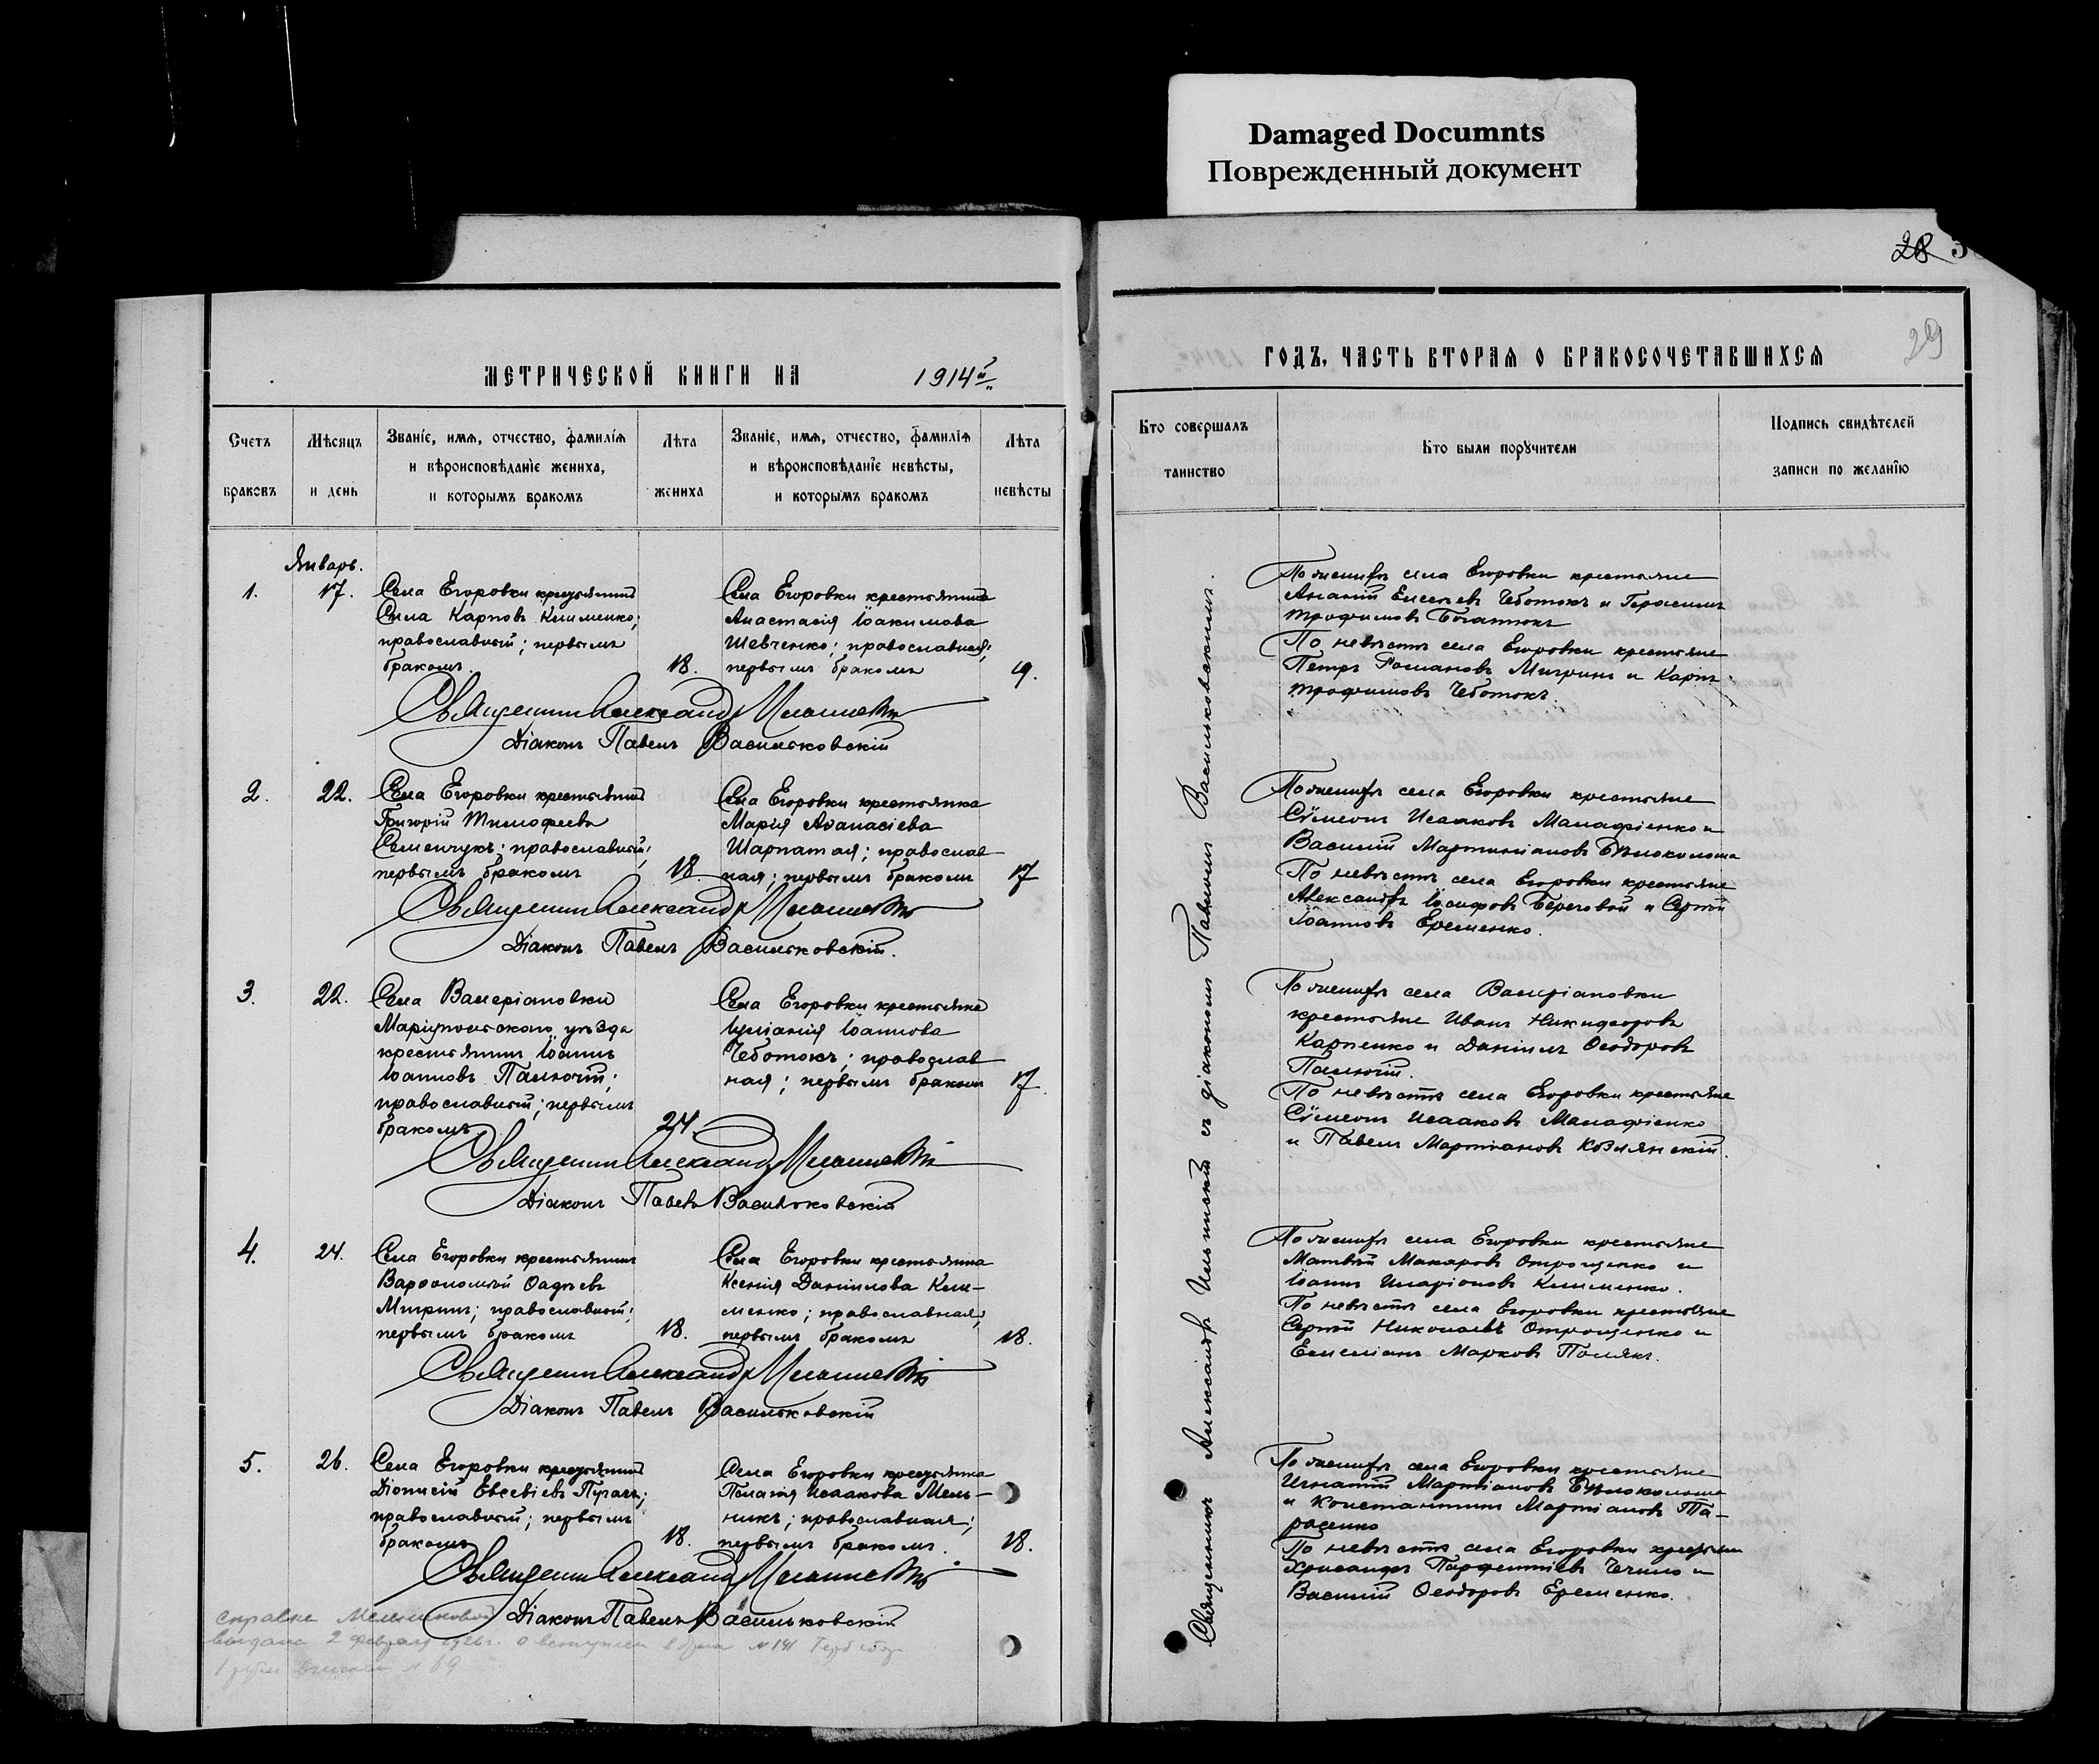 Damaged Documnts
Поврежденный документ
28
29
МЕТРИЧЕСКОЙ КНИГИ НА 1914й
Счетъ браковъ
Мѣсяцъ и день
Званіе, имя, отчество, фамилія
и вѣроисповѣданіе жениха,
и которымъ бракомъ
Лѣта жениха
Званіе, имя, отчество, фамилія
и вѣроисповѣданіе невѣсты,
и которымъ бракомъ
Лѣта невѣсты
Январь.
1.
17.
Села Егоровки крестьянинъ
Сила Карповъ Клименко;
православный; первымъ
бракомъ.
18.
Села Егоровки крестьянка
Анастасія Іоакимова
Шевченко; православная;
первымъ бракомъ
19.
Священникъ Александръ
Діаконъ Павелъ Васильковскій
2.
22.
Села Егоровки крестьянинъ
Григорій Тимофеевъ
Семенчукъ; православный;
первымъ бракомъ
18.
Села Егоровки крестьянка
Марія Аѳанасіева
Шарпатая; православ
ная; первымъ бракомъ
17
Священникъ Александръ
Діаконъ Павелъ Васильковскій.
3.
22.
Села Валеріановки
Маріупольскаго уѣзда
крестьянинъ Іоаннъ
Іоанновъ Палючій;
православный; первымъ
бракомъ
24.
Села Егоровки крестьянка
Іуліанія Іоаннова
Чеботокъ; православ
ная; первымъ бракомъ
17.
Священникъ Александръ
Діаконъ Павелъ Васильковскій
4.
24.
Села Егоровки крестьянинъ
Варѳоломей Ѳадѣевъ
Мигринъ; православный;
первымъ бракомъ
18.
Села Егоровки крестьянка
Ксенія Даніилова Кли-
менко; православная;
первымъ бракомъ
18.
Священникъ Александръ
Діаконъ Павелъ Васильковскій
5.
26.
Села Егоровки крестьянинъ
Діонисій Евсевіевъ Пугачъ;
православный; первымъ
бракомъ
18.
Села Егоровки крестьянка
Пелагія Исаакова Мель-
никъ; православная;
первымъ бракомъ.
18.
Священникъ Александръ
Діаконъ Павелъ Васильковскій
справка
выдана 2 февраля
№ 69
ГОДЪ, ЧАСТЬ ВТОРАЯ О БРАКОСОЧЕТАВШИХСЯ
Кто совершалъ
таинство
Кто были поручители
Подпись свидѣтелей
записи по желанію
Священникъ Александръ Ильинскій съ діакономъ Павломъ Васильковскимъ.
По женихѣ села Егоровки крестьяне
Ананій Елисеевъ Чеботокъ и Герасимъ
Трофимовъ Богатокъ
По невѣстѣ села Егоровки крестьяне
Петръ Романовъ Мигринъ и Карпъ
Трофимовъ Чеботокъ.
По женихѣ села Егоровки крестьяне
Сѵмеонъ Исааковъ Малафіенко и
Василій Мартиніановъ Бѣлоколоша
По невѣстѣ села Егоровки крестьяне
Александръ Іосифовъ Береговой и Сергій
Іоанновъ Еременко.
По женихѣ села Валеріановки
крестьяне Иванъ Никифоровъ
Карпенко и Даніилъ Ѳеодоровъ
Палючій.
По невѣстѣ села Егоровки крестьяне
Сѵмеонъ Исааковъ Малафіенко
и Павелъ Мартіановъ Козлянскій.
По женихѣ села Егоровки крестьяне
Матвѣй Макаровъ Отрощенко и
Іоаннъ Иларіоновъ Клименко.
По невѣстѣ села Егоровки крестьяне
Сергій Николаевъ Отрощенко и
Емеліанъ Марковъ Полякъ.
По женихѣ села Егоровки крестьяне
Игнатій Мартіановъ Бѣлоколоша
и Константинъ Мартіановъ Та-
расенко
По невѣстѣ села Егоровки крестьяне
Хрисанфъ Парфентіевъ и
Василій Ѳеодоровъ Еременко.